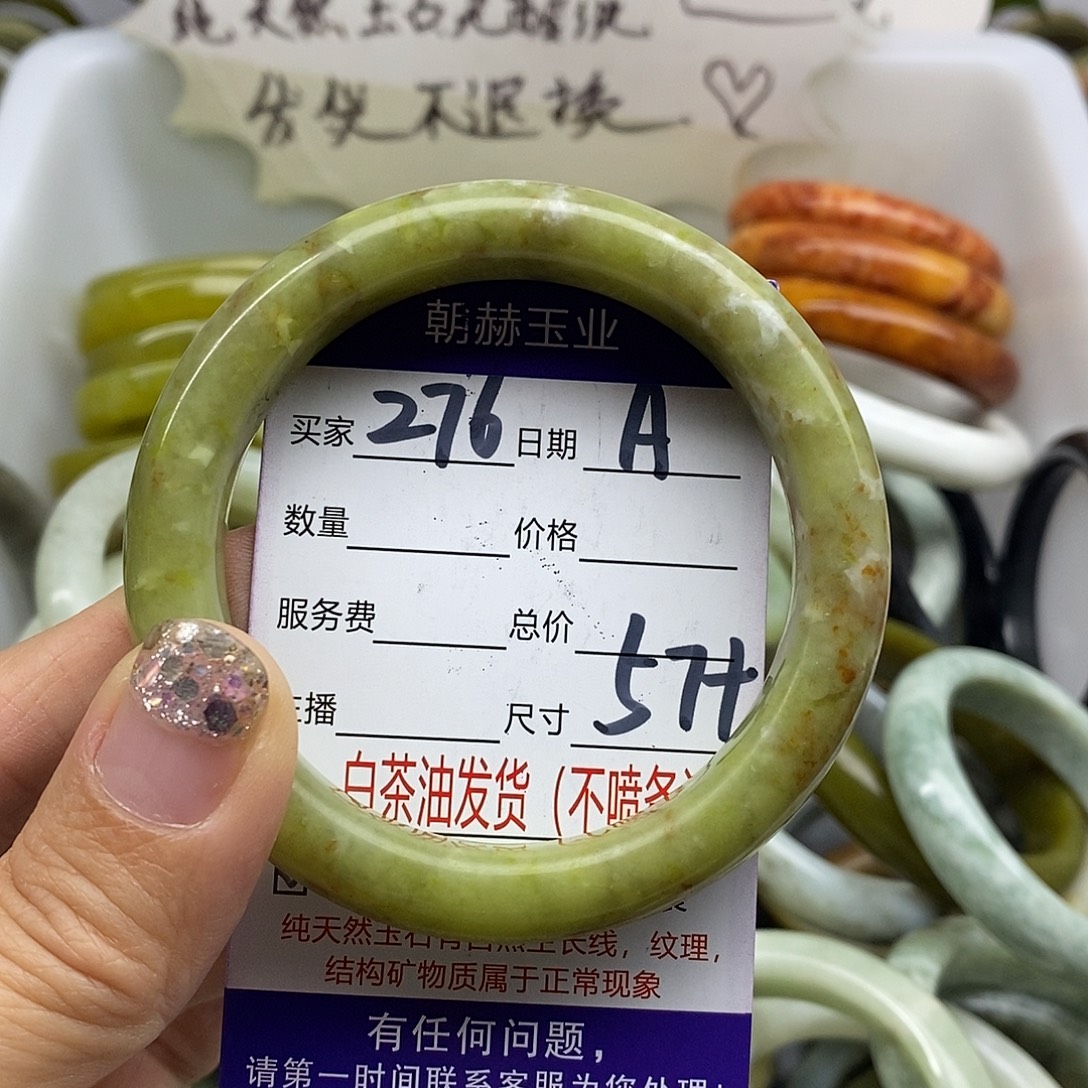 纯天然玉石无
售后不退换
朝赫玉业
买家 276 日期 A
数量 价格
服务费 总价
主播 尺寸 57H
白茶油发货（不喷
纯天然玉石有自然生长线，纹理，
结构矿物质属于正常现象
有任何问题，
请第一时间联系客服为您处理！